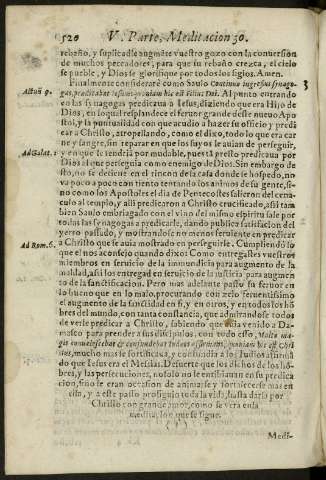 520 V. Parte, Meditacion 30.
rebaño, y suplicadle augmẽte vuestro gozo con la conuersión
de muchos pecadores, para que su rebaño crezca, el cielo
se pueble, y Dios se glorifique por todos los siglos. Amen.
Finalmente considerarè como Saulo Continuo ingressus synago- 3
Actuũ 9. gas, prædicabat Iesum, quoniam hic est filius Dei. Al punto entrando
en las synagogas predicaua à Iesus, diziendo que era Hijo de
Dios, en lo qual resplandece el feruor grande deste nueuo Apos
tol, y la puntualidad con que acudio a hazer su oficio y predi
car a Christo, atropellando, como el dixo, todo lo que era car
ne y sangre, sin reparar en que los suyos le auian de perseguir,
Ad Galat. 1 y en que se tendria por mudable, pues tã presto predicaua por
Dios al que perseguia como enemigo de Dios. Sin embargo de
sto, no se detiene en el rincon de la casa donde se hospedo, no
va poco a poco con tiento tentando los animos de su gente, si-
no como los Apostoles el dia de Pentecostes salieron del cena-
culo al templo, y alli predicaron a Christo crucificado, assi tam
bien Saulo embriagado con el vino del mismo espiritu sale por
todas las synagogas a predicarle, dando publica satisfacion del
yerro passado, y mostrandose no menos feruiente en predicar
Ad Rom. 6. a Christo que se auia mostrado en perseguirle. Cumpliendo lo
que el nos aconsejo quando dixo: Como entregastes vuestros
miembros en seruicio de la immundicia para augmento de la
maldad, assi los entregad en seruicio de la justicia para augmen
to de la sanctificacion. Pero mas adelante passò su feruor en
lo bueno que en lo malo, procurando con zelo feruentissimo
el augmento de la sanctidad en sì, y en otros, y en todos los hõ
bres del mundo, con tanta constancia, que admirandose todos
de verle predicar a Christo, sabiendo que auia venido a Da-
masco para prender a sus discipulos, con todo esso, Multo ma-
gis conualescebat & confundebat Iudæos affirmans, quoniam hic est Chri
stus, mucho mas se fortificaua, y confundia a los Iudios afirmã
do que Iesus era el Mesias. De suerte que los dichos de los hõ-
bres, y las persecuciones, no solo no le entibiauan en su predica
cion, sino le eran ocasion de animarse y fortalecerse mas en
ella, y a este passo prosiguio toda la vida, hasta darla por
Christo con grande amor, como se verà en la
meditacion que se sigue.
Medi-